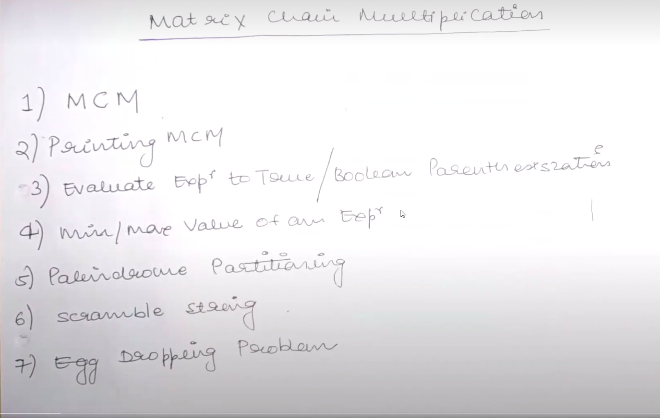 Matrix Chain Multiplication
1) MCM
2) Printing MCM
3) Evaluate Expr to True/Boolean Parenthesization
4) Min/Max Value of an Expr
5) Palindrome Partitioning
6) Scramble String
7) Egg Dropping Problem